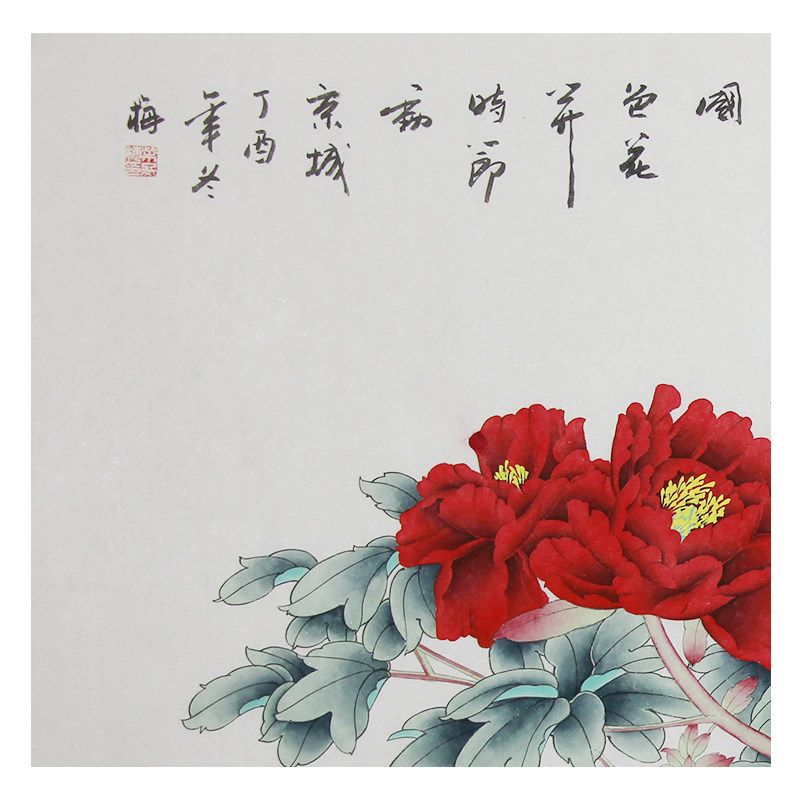 國
色花
开
時節
動
京城
丁酉
年冬
梅